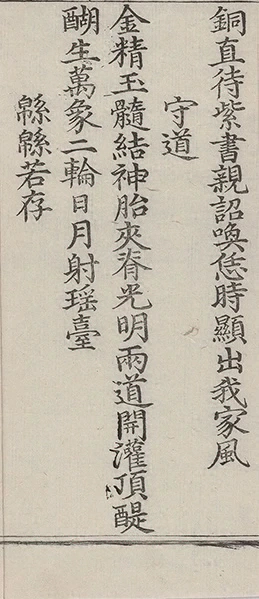 銅直待紫書親詔喚恁時顯出我家風
守道
金精玉髓結神胎夾脊光明兩道開灌頂醍
醐生萬象二輪日月射瑤臺
緜緜若存